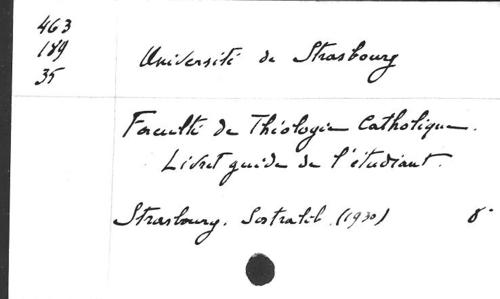 463
189
35
Université de Strasbourg
Faculté de Théologie Catholique.
Livret guide de l'étudiant.
Strasbourg. Sostralib. (1930) 8°